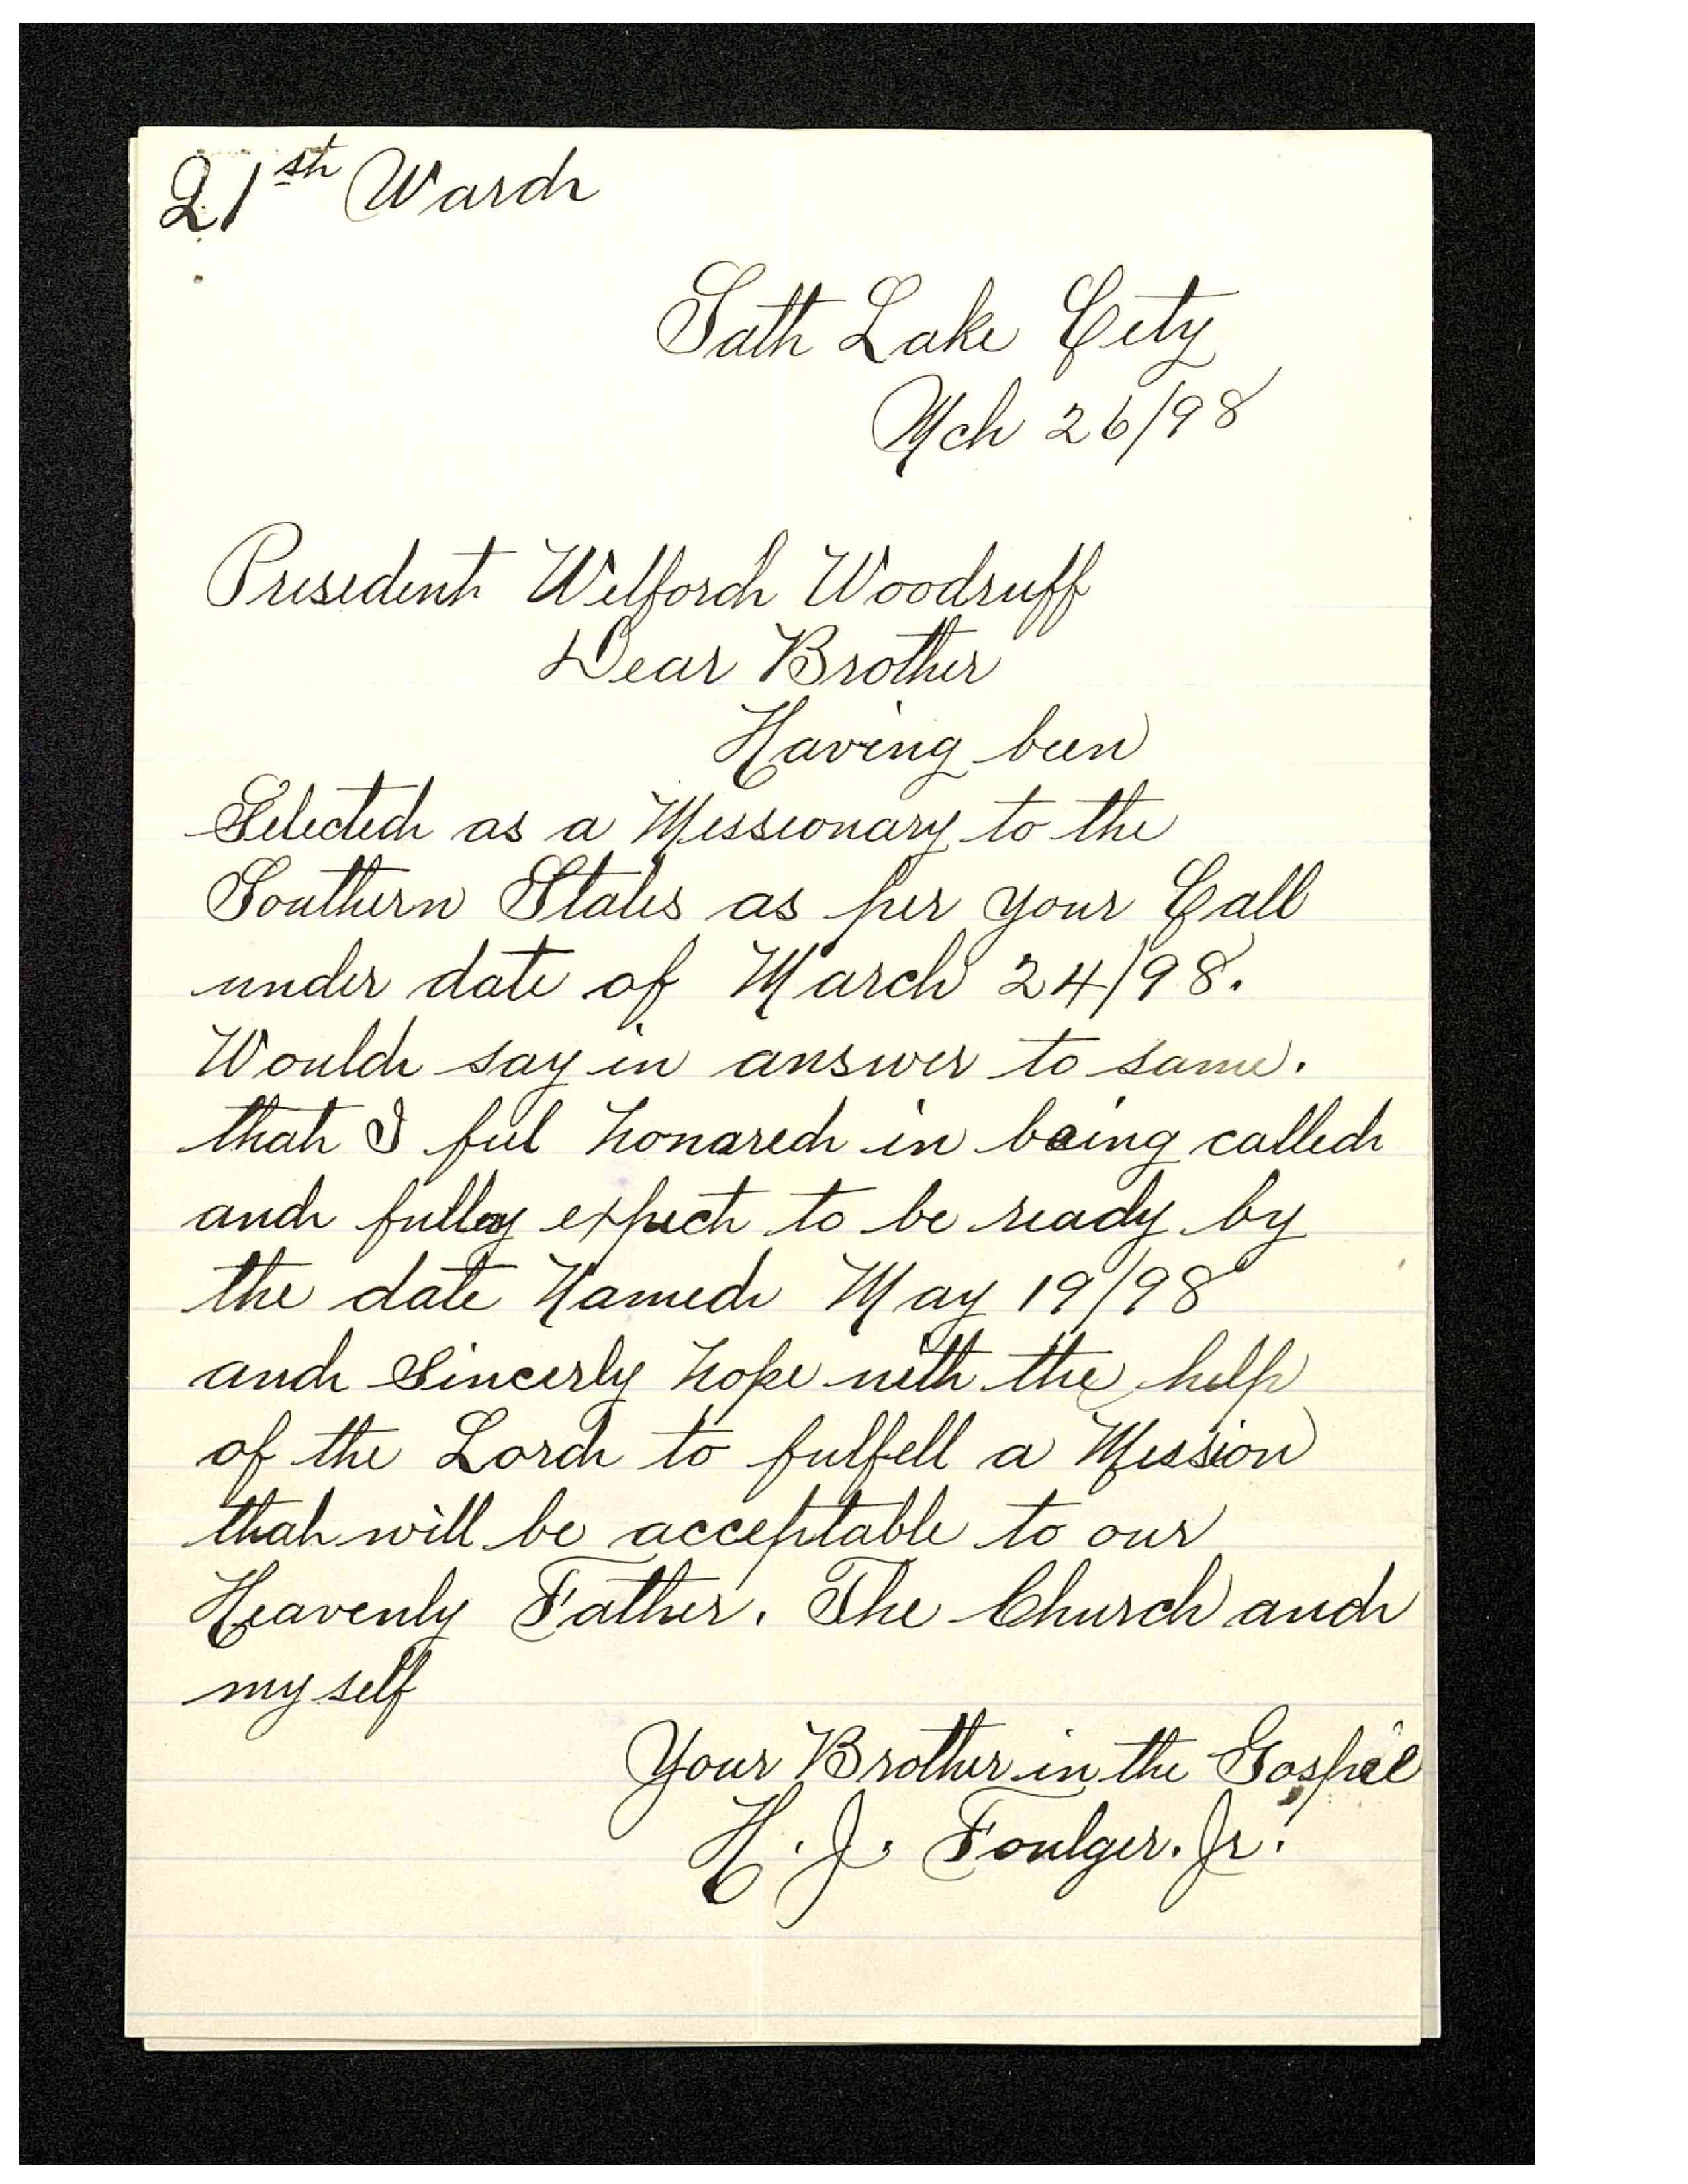 21st Ward
Salt Lake City
Mch 26/98
President Wilford Woodruff
Dear Brother
Having been
Selected as a Missionary to the
Southern States as per your Call
under date of March 24/98.
Would say in answer to same.
that I feel honared in being called
and fulley expect to be ready by
the date Named May 19/98
and Sincerly hope with the help
of the Lord to fulfill a Mission
that will be acceptable to our
Heavenly Father. The Church and
my self
Your Brother in the Gospel
H. J. Foulger. Jr.